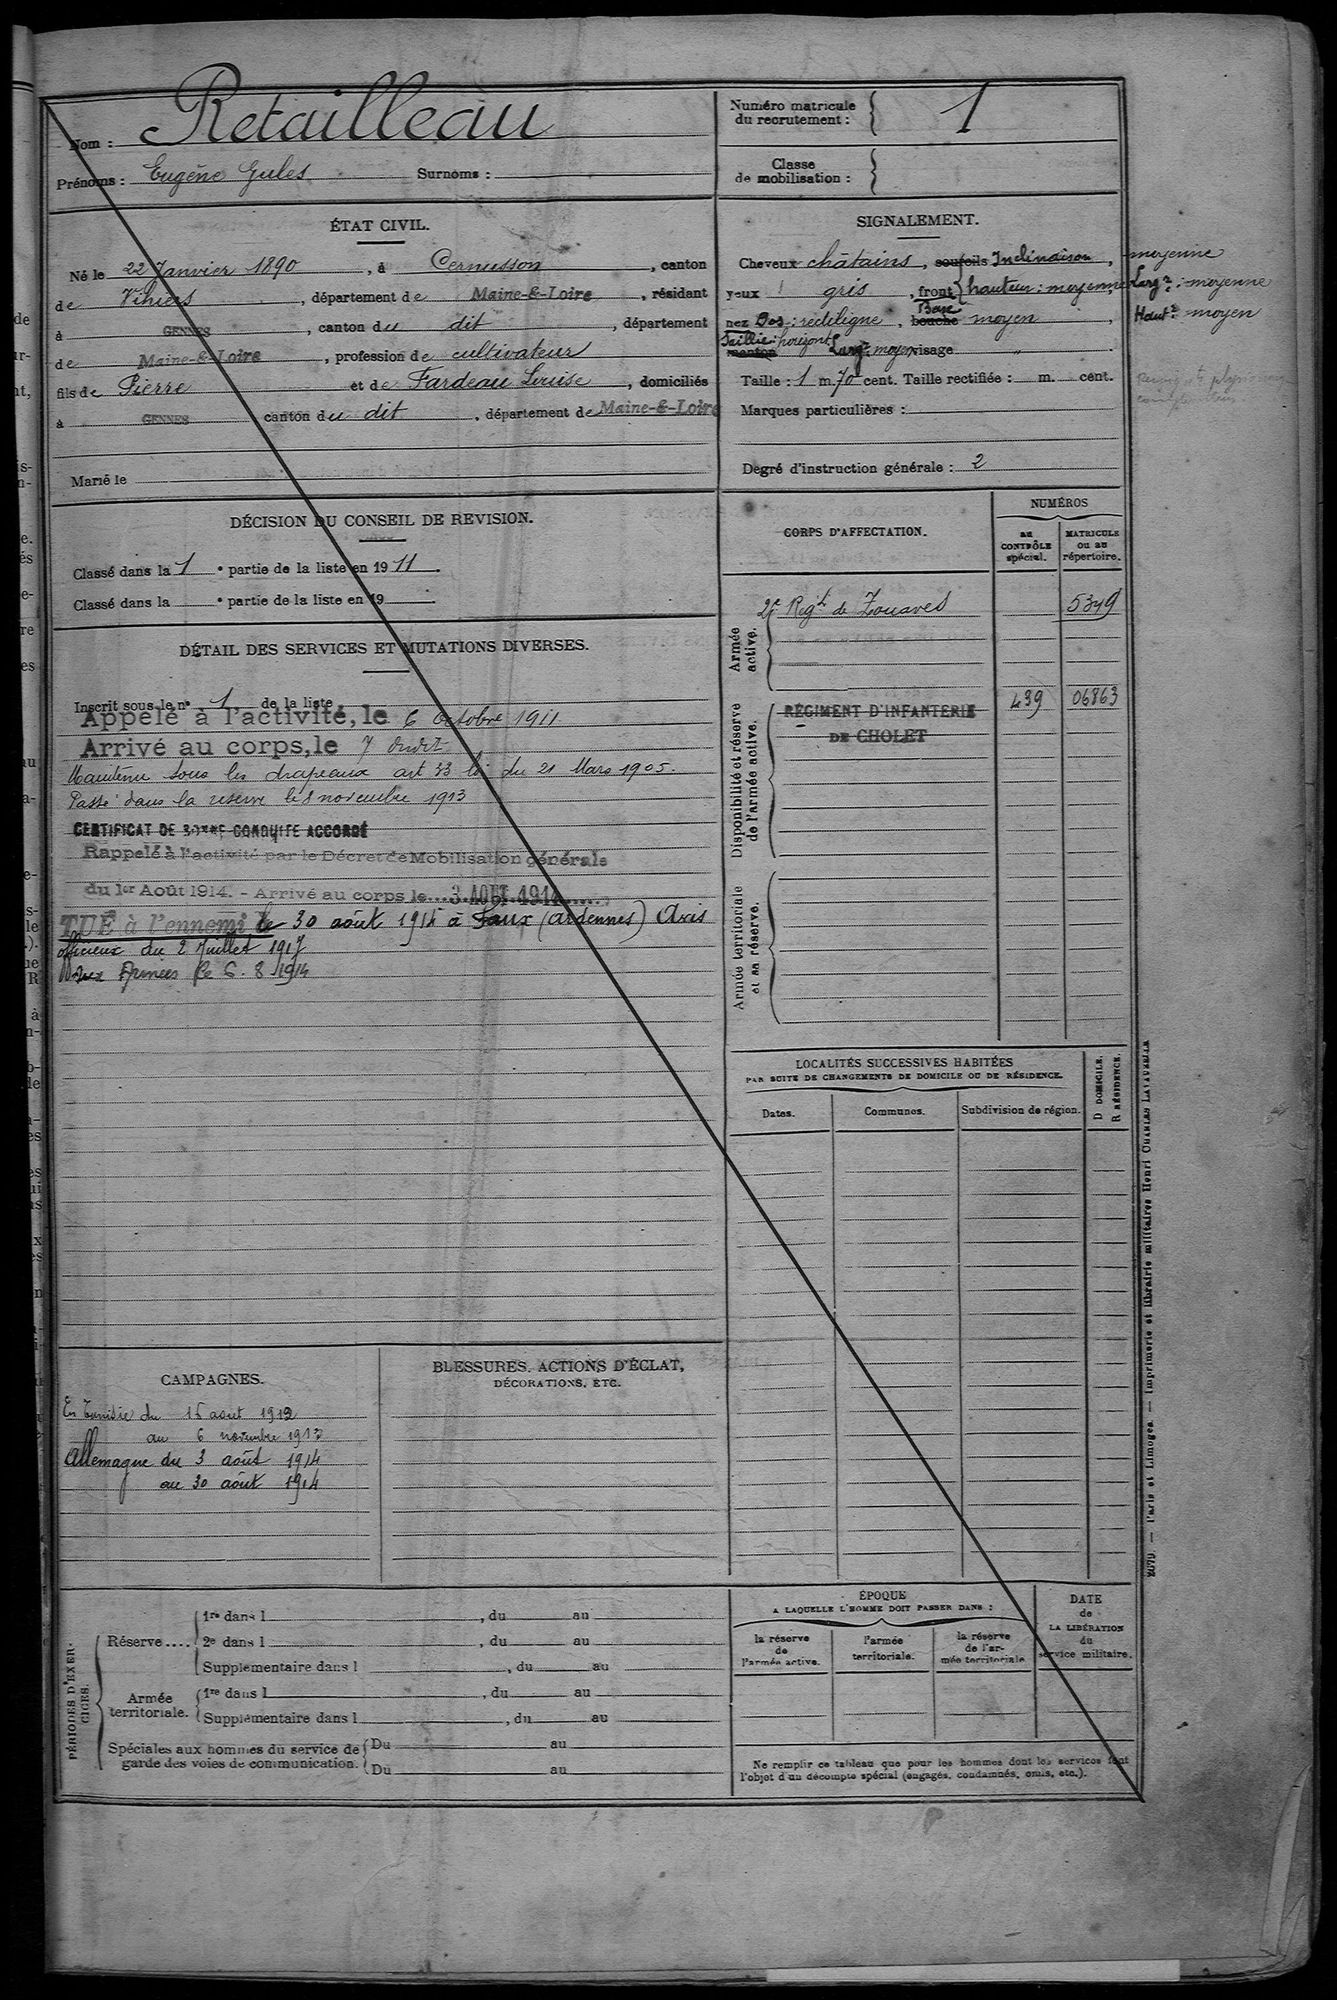 Nom : Retailleau
Prénoms : Eugène Jules Surnoms :
Numéro matricule
du recrutement : 1
Classe
de mobilisation :
ÉTAT CIVIL.
Né le 22 Janvier 1890, à Cernusson, canton
de Vihiers, département de Maine-&-Loire, résidant
à GENNES, canton du dit, département
de Maine-&-Loire, profession de cultivateur
fils de Pierre et de Fardeau Louise, domiciliés
à GENNES canton du dit, département de Maine-&-Loire
Marié le
SIGNALEMENT.
Cheveux châtains, sourcils Inclinaison, moyenne
yeux gris, front hauteur : moyenne, Largr : moyenne
nez Dos : rectiligne, Base bouche moyen, Hautr moyen
Saillie : horizont menton Largr moyen visage
Taille : 1 m. 70 cent. Taille rectifiée : m. cent.
Marques particulières :
Degré d'instruction générale : 2
DÉCISION DU CONSEIL DE REVISION.
Classé dans la 1 e partie de la liste en 1911.
Classé dans la e partie de la liste en 19
DÉTAIL DES SERVICES ET MUTATIONS DIVERSES.
Inscrit sous le no 1 de la liste
Appelé à l'activité, le 6 octobre 1911
Arrivé au corps, le 7 dudt
Maintenu sous les drapeaux art 33 loi du 21 Mars 1905.
Passé dans la réserve le 8 novembre 1913
CERTIFICAT DE BONNE CONDUITE ACCORDÉ
Rappelé à l'activité par le Décret de Mobilisation générale
du 1er Août 1914. - Arrivé au corps le 3 AOUT 1914
TUÉ à l'ennemi le 30 août 1914 à Faux (Ardennes) Avis
officieux du 2 Juillet 1917
Aux Armées le 6.8 1914
CORPS D'AFFECTATION.
NUMÉROS
au
CONTRÔLE
spécial.
MATRICULE
ou au
répertoire.
Armée
active.
2e Regt de Zouaves 5349
Disponibilité et réserve
de l'armée active.
RÉGIMENT D'INFANTERIE 439 06863
DE CHOLET
Armée territoriale
et sa réserve.
LOCALITÉS SUCCESSIVES HABITÉES
PAR SUITE DE CHANGEMENTS DE DOMICILE OU DE RÉSIDENCE.
Dates.
Communes.
Subdivision de région.
D DOMICILE.
R RÉSIDENCE.
CAMPAGNES.
En Tunisie du 15 aout 1912
au 6 novembre 1913
Allemagne du 3 août 1914
au 30 août 1914
BLESSURES, ACTIONS D'ÉCLAT,
DÉCORATIONS, ETC.
PÉRIODES D'EXER-
CICES.
Réserve....
1re dans l , du au
2e dans l , du au
Supplémentaire dans l , du au
Armée
territoriale.
1re dans l , du au
Supplémentaire dans l , du au
Spéciales aux hommes du service de
garde des voies de communication.
Du au
Du au
ÉPOQUE
A LAQUELLE L'HOMME DOIT PASSER DANS :
la réserve
de
l'armée active.
l'armée
territoriale.
la réserve
de l'ar-
mée territoriale
DATE
de
LA LIBÉRATION
du
service militaire.
Ne remplir ce tableau que pour les hommes dont les services font
l'objet d'un décompte spécial (engagés, condamnés, omis, etc.).
Paris et Limoges. — Imprimerie et librairie militaires Henri CHARLES-LAVAUZELLE